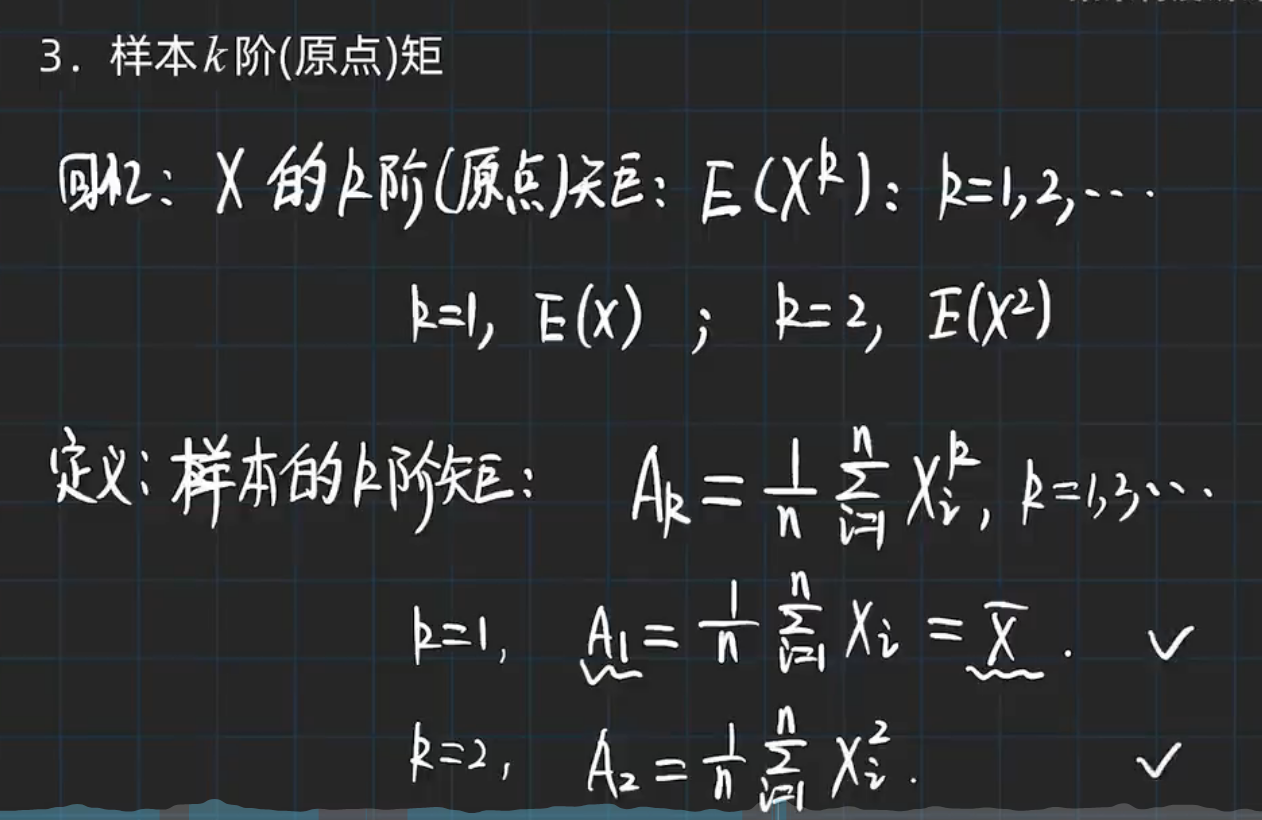 3. 样本k阶(原点)矩
回忆: X 的k阶(原点)矩: E(X^k): k=1,2,…
k=1, E(X) ; k=2, E(X²)
定义: 样本的k阶矩: A_k = 1/n ∑_{i=1}^{n} X_i^k, k=1,3,…
k=1, A₁ = 1/n ∑_{i=1}^{n} X_i = X̄ . ✓
k=2, A₂ = 1/n ∑_{i=1}^{n} X_i² . ✓